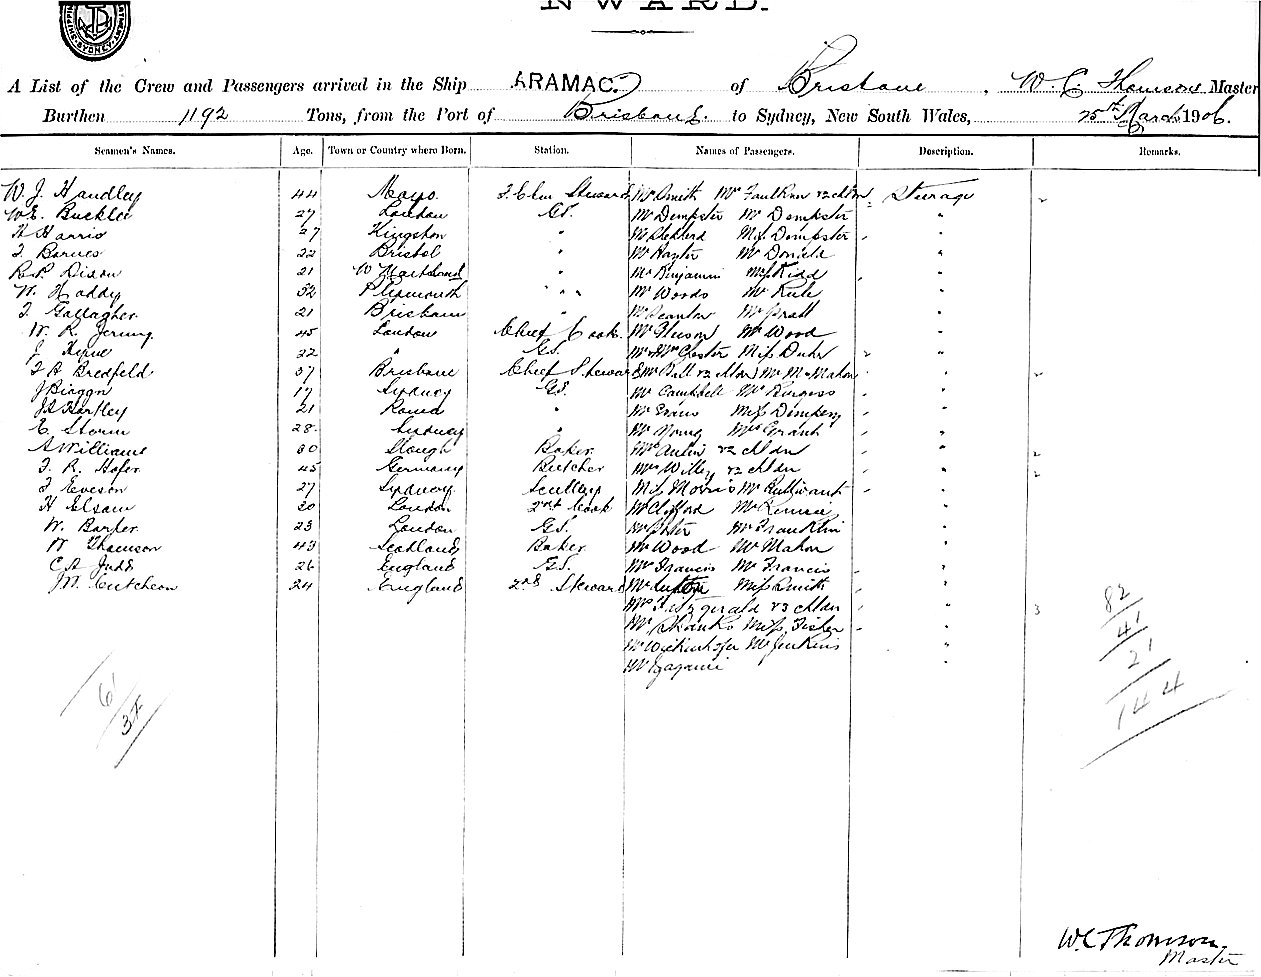 NWARD.
SYDNEY
A List of the Crew and Passengers arrived in the Ship ARAMAC. of Brisbane, W C Thomson Master
Burthen 1192 Tons, from the Port of Brisbane to Sydney, New South Wales, 25th March 1906.
Seamen's Names. Age. Town or Country where Born. Station. Names of Passengers. Description. Remarks.
W. J. Handley 44 Mayo. Steward Mr Smith Mr Faulkner & 2 chldn Steerage 2
W. E. Buckler 27 London GS. Mr Dempster Mr Dempster "
H Harris 27 Kingston " Mr Shepherd Miss Dempster "
T. Barnes 22 Bristol " Mr Hayter Mr Daniels "
R. P. Dixon 21 " Mr Benjamin Miss Kidd "
W. Haddy 52 Plymouth " " " Mr Woods Mr Rule "
T Gallagher 21 Brisbane " Mr Scanlon Mr Pratt "
W. R. 45 London Chief Cook Mr Gleeson Mr Wood "
J 22 " GS. Mr & Mrs Chester Miss Duhr 2 "
T A Bredfeld 37 Brisbane Chief Steward Mrs Ball & 2 chldn Mr McMahon " 2
J Biaggn 17 Sydney GS. Mr Campbell Mr Burgess "
Hartley 21 " Mr Evans Miss Dempsey "
E. Storm 28 Sydney " Mr Young Mrs Grant "
A Williams 30 Slough Baker Mrs & 2 chldn " 2
T. R. Hofer 45 Germany Butcher Mrs Willey & 2 chldn " 2
T Eveson 27 Sydney Scullery Miss Morris Mr Bullivant "
H Elsam 20 London 2nd Cook Mr Clifford Mr "
W. Barker 23 London GS. Mr Mr Franklin "
W Thomson 43 Scotland Baker Mr Wood Mr Mahon "
C A Judd 26 England GS. Mrs Francis Mr Francis "
J. M. Cutcheon 24 England 2nd Steward Mr Miss Smith "
Mrs Fitzgerald & 3 chldn " 3
Mr Shanks Miss Fisher "
Mr Mr Jenkins "
Mr "
82
41
21
144
6
W. C. Thomson.
Master